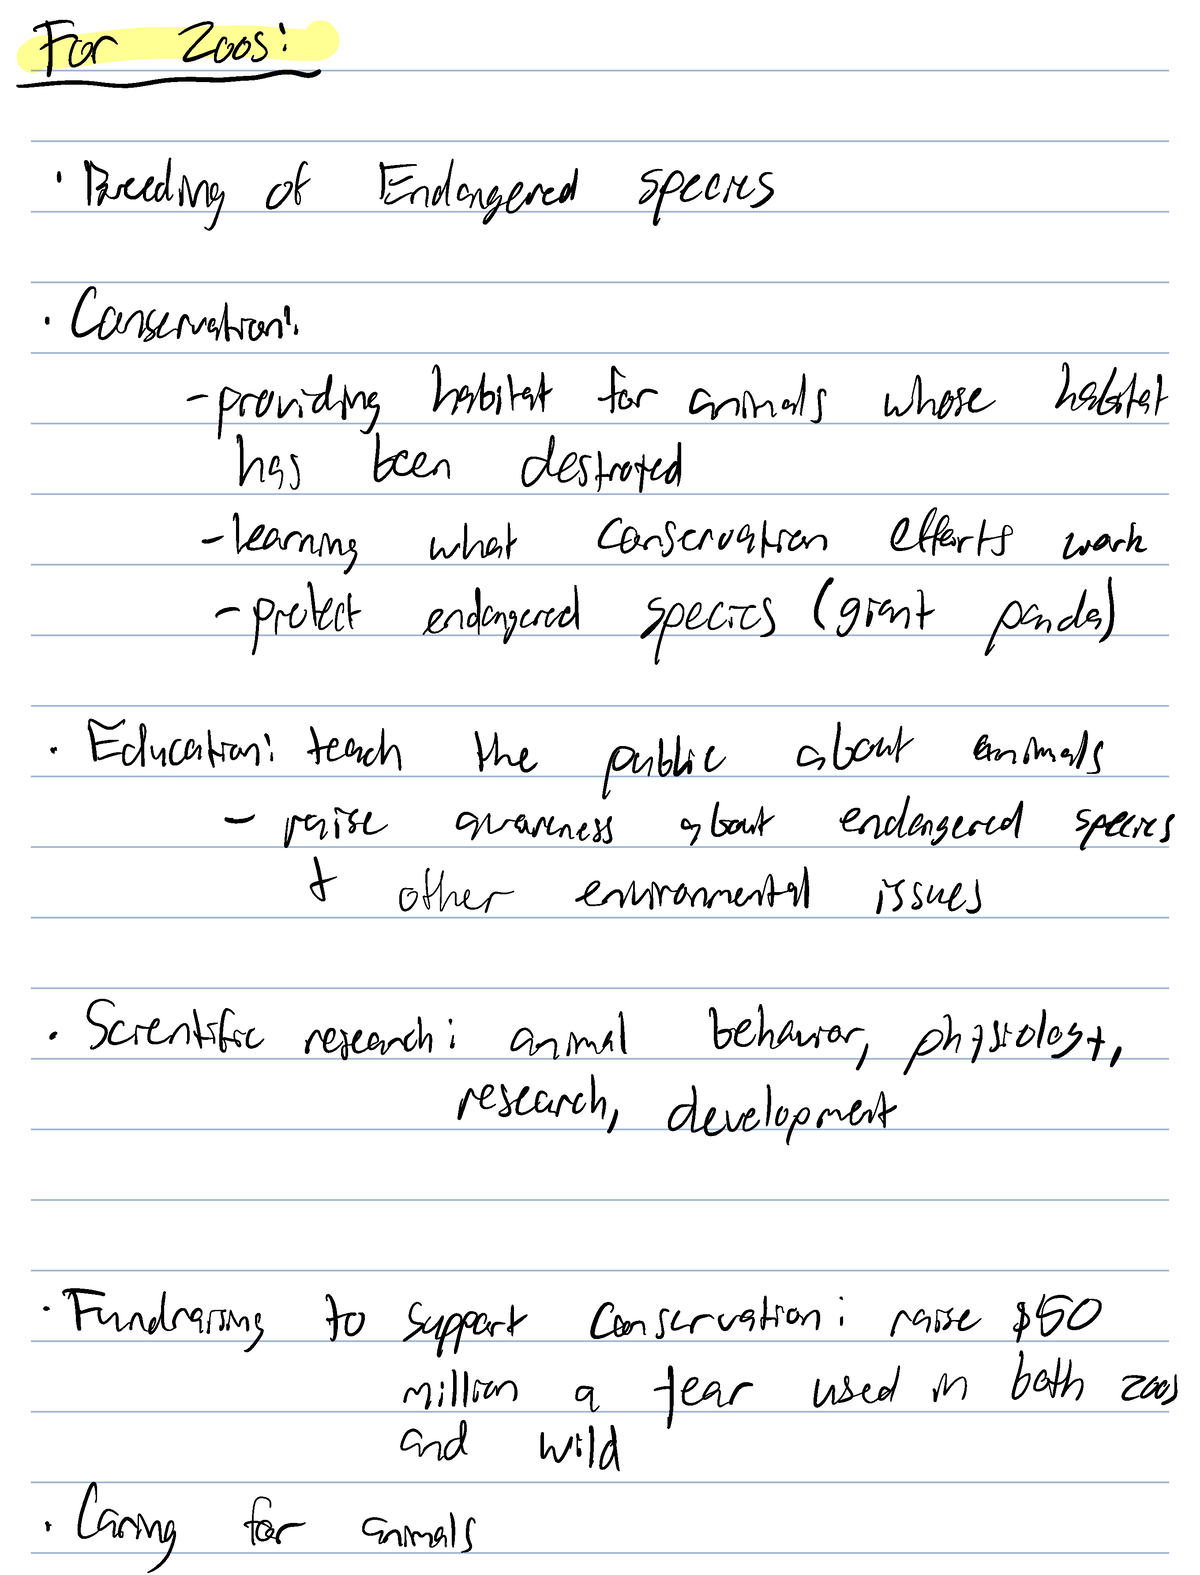 For Zoos:
· Breeding of Endangered species
· Conservation:
- providing habitat for animals whose habitat
has been destroyed
- learning what conservation efforts work
- protect endangered species (giant panda)
· Education: teach the public about animals
- raise awareness about endangered species
+ other environmental issues
· Scientific research: animal behavior, physiology,
research, development
· Fundraising to support conservation: raise $50
million a year used in both zoos
and wild
· Caring for animals